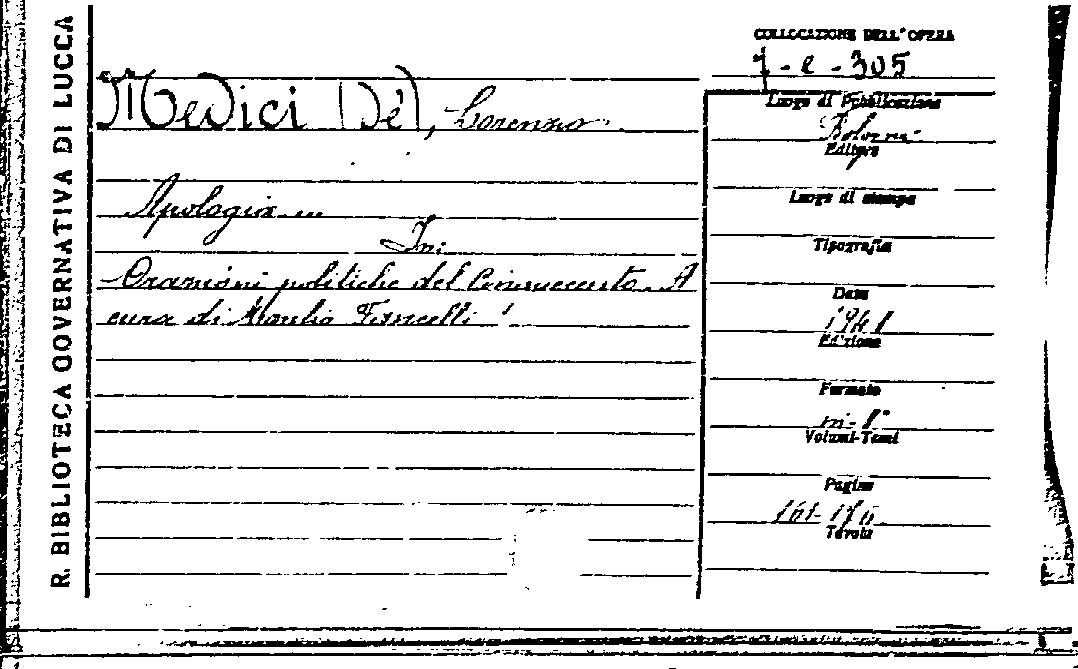 R. BIBLIOTECA GOVERNATIVA DI LUCCA
Medici (De'), Lorenzo.
Apologia ...
In:
Orazioni politiche del Cinquecento. A
cura di Manlio Fancelli
COLLOCAZIONE DELL'OPERA
7-e-305
Luogo di Pubblicazione
Bologna
Editore
Luogo di stampa
Tipografia
Data
1941
Edizione
Formato
in-8°
Volumi-Tomi
Pagine
161-176
Tavole